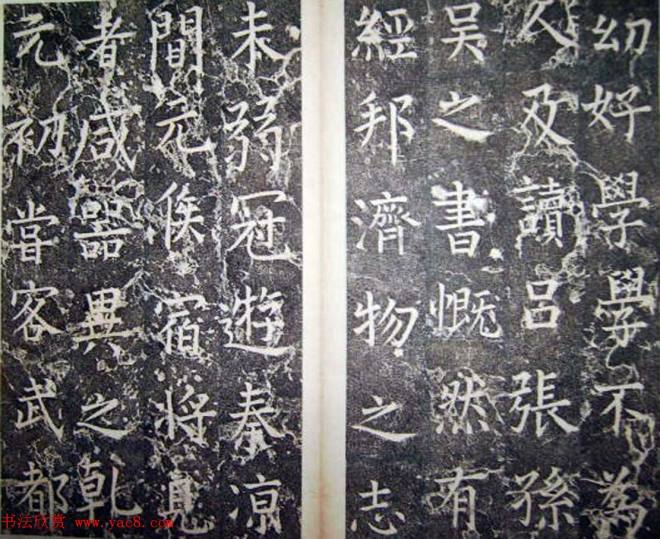 幼好學學不為
人及讀呂張孫
吳之書慨然有
經邦濟物之志
未弱冠遊秦凉
間元侯宿将見
者咸器異之乹
元初嘗客武都
书法欣赏 www.yac8.com